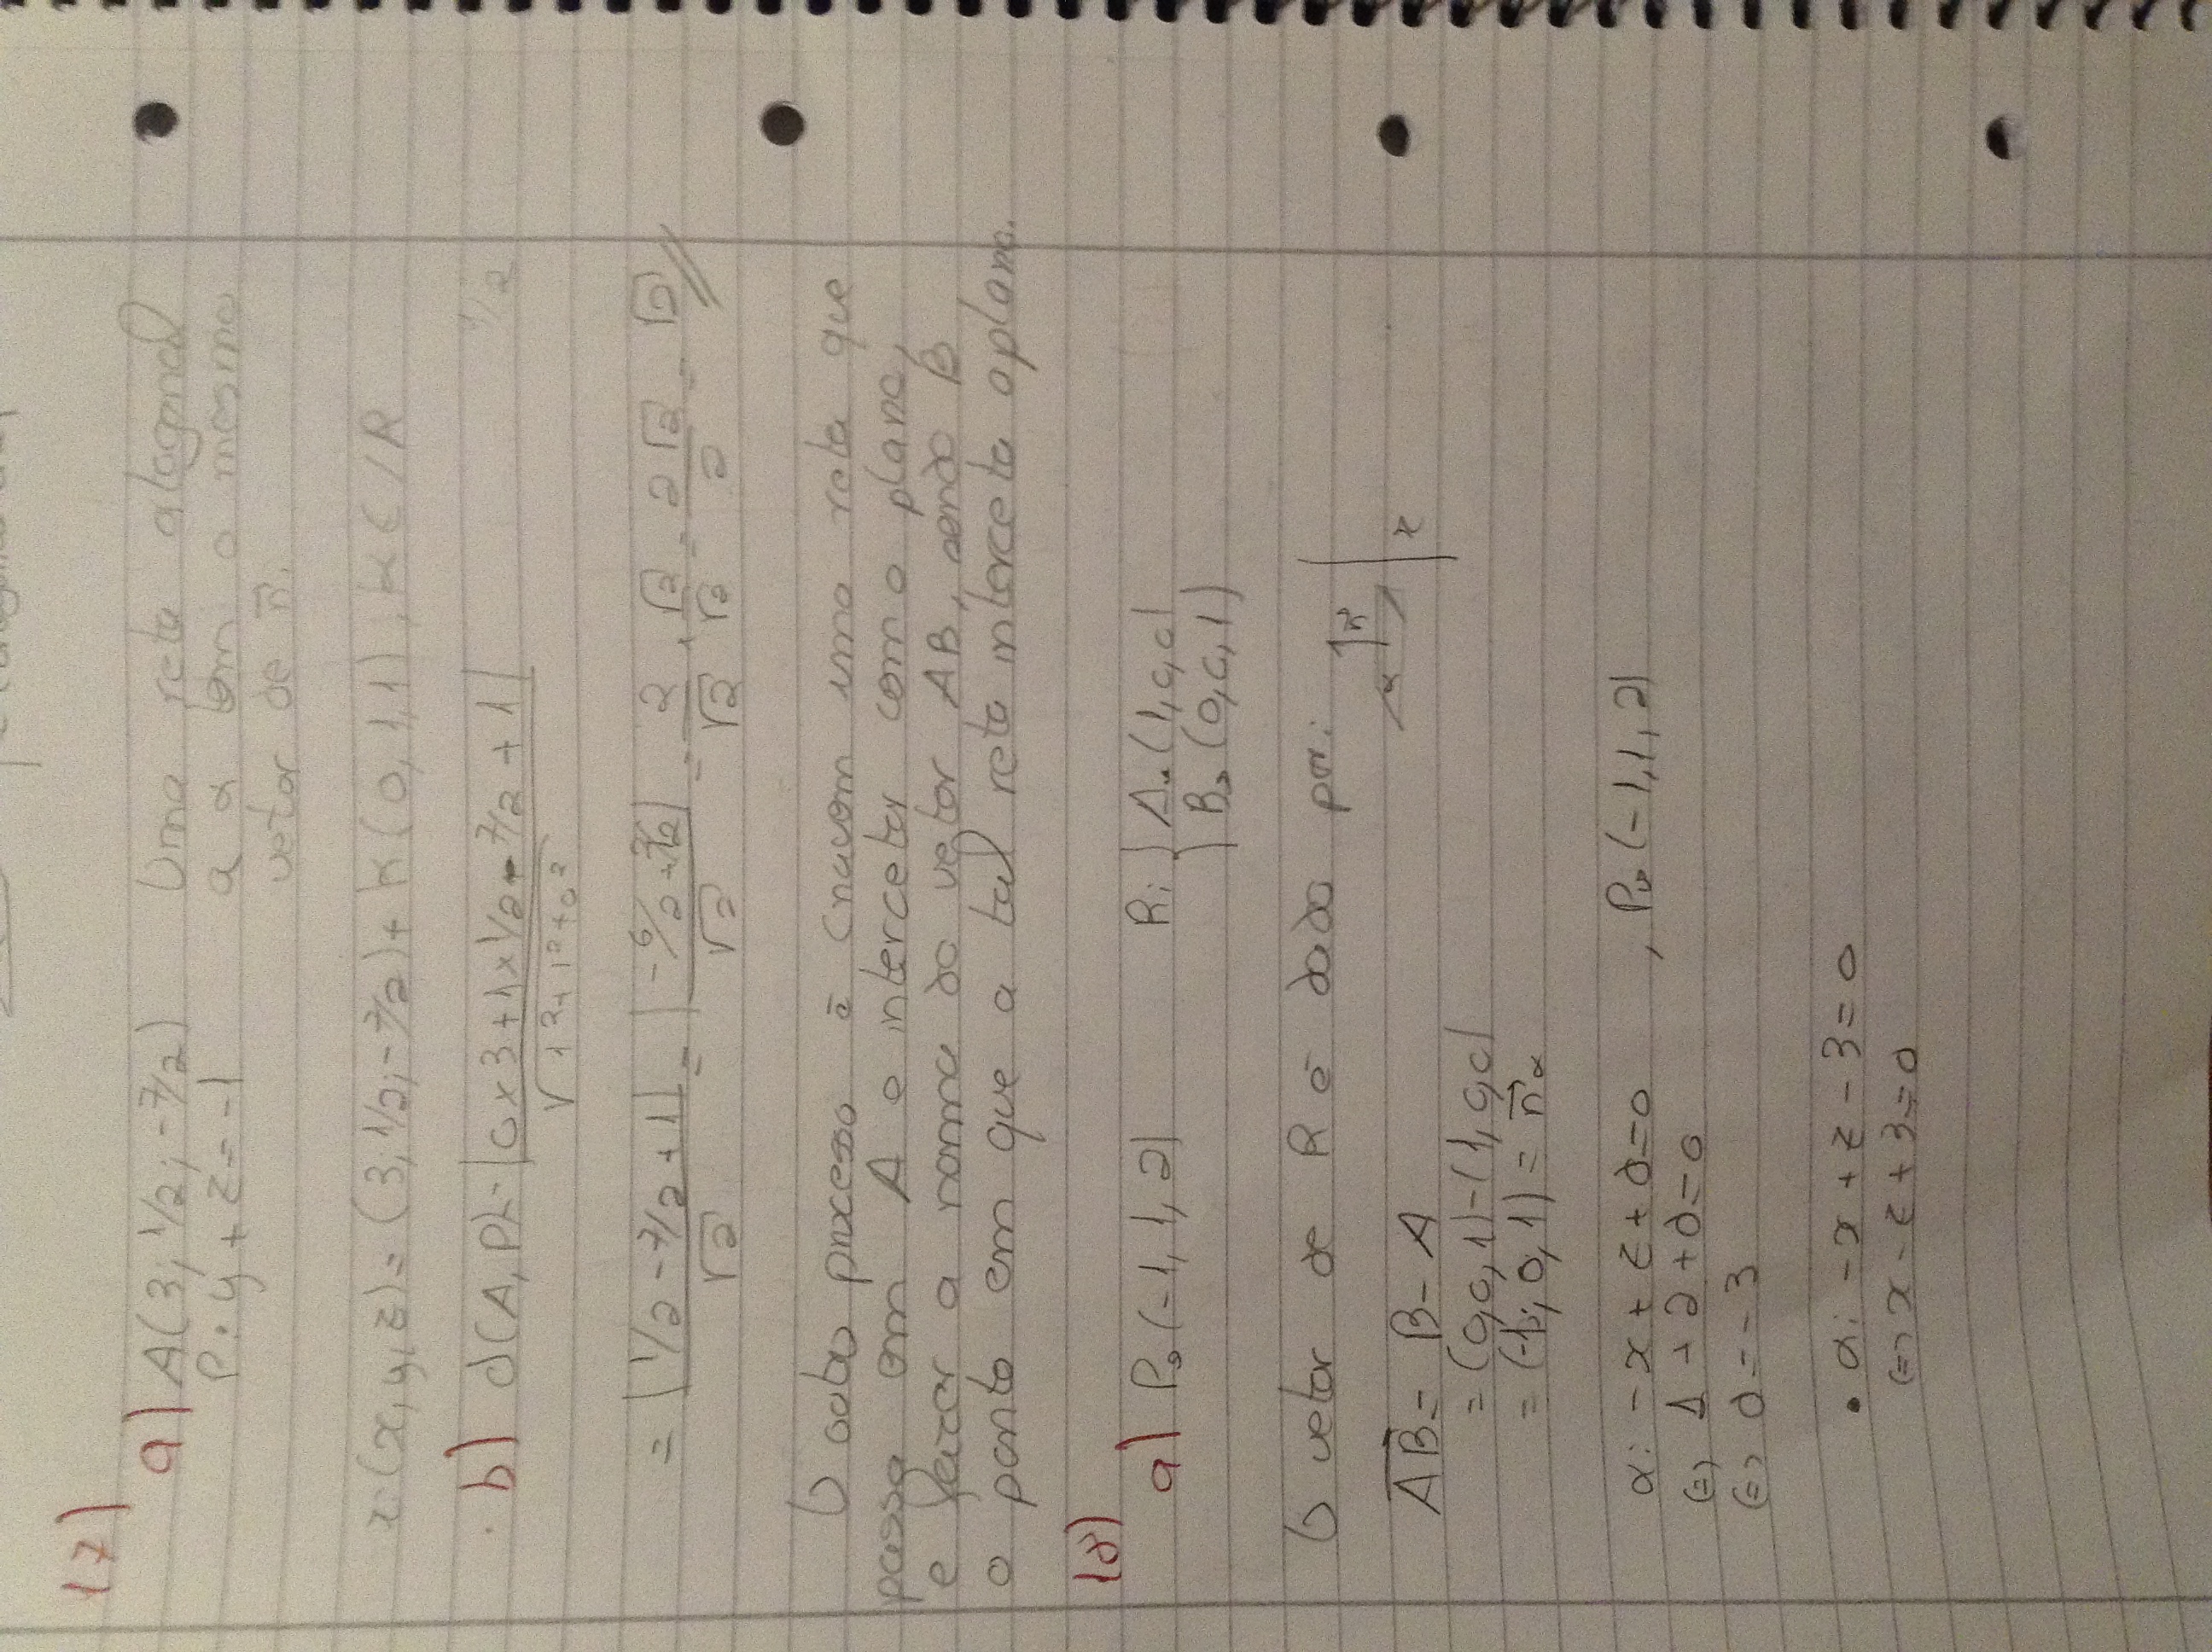 17)
a) A(3; 1/2; -7/2) Uma reta otogonal
P: y + z = -1 a α tem o mesmo
vetor de n⃗.
r: (x, y, z) = (3; 1/2; -7/2) + K(0, 1, 1), K ∈ IR
b) d(A, P) = |0 x 3 + 1 x 1/2 - 7/2 + 1| / √(1² + 1² + 0²) 1/2
= |1/2 - 7/2 + 1| / √2 = |-6/2 + 2/2| / √2 = 2/√2 · √2/√2 = 2√2/2 = √2 //
O outro processo é uma reta que
passa em A e intercetar com o plano,
e fazer a norma do vetor AB, sendo B
o ponto em que a tal reta interceta o plano.
18)
a) P → (-1, 1, 2) R: { A → (1, 0, 0)
B → (0, 0, 1)
O vetor de R é dado por:
n⃗ α r
AB⃗ = B - A
= (0, 0, 1) - (1, 0, 0)
= (-1; 0, 1) = n⃗α
α: -x + z + d = 0 , P → (-1, 1, 2)
(=) 1 + 2 + d = 0
(=) d = -3
• α: -x + z - 3 = 0
(=) x - z + 3 = 0